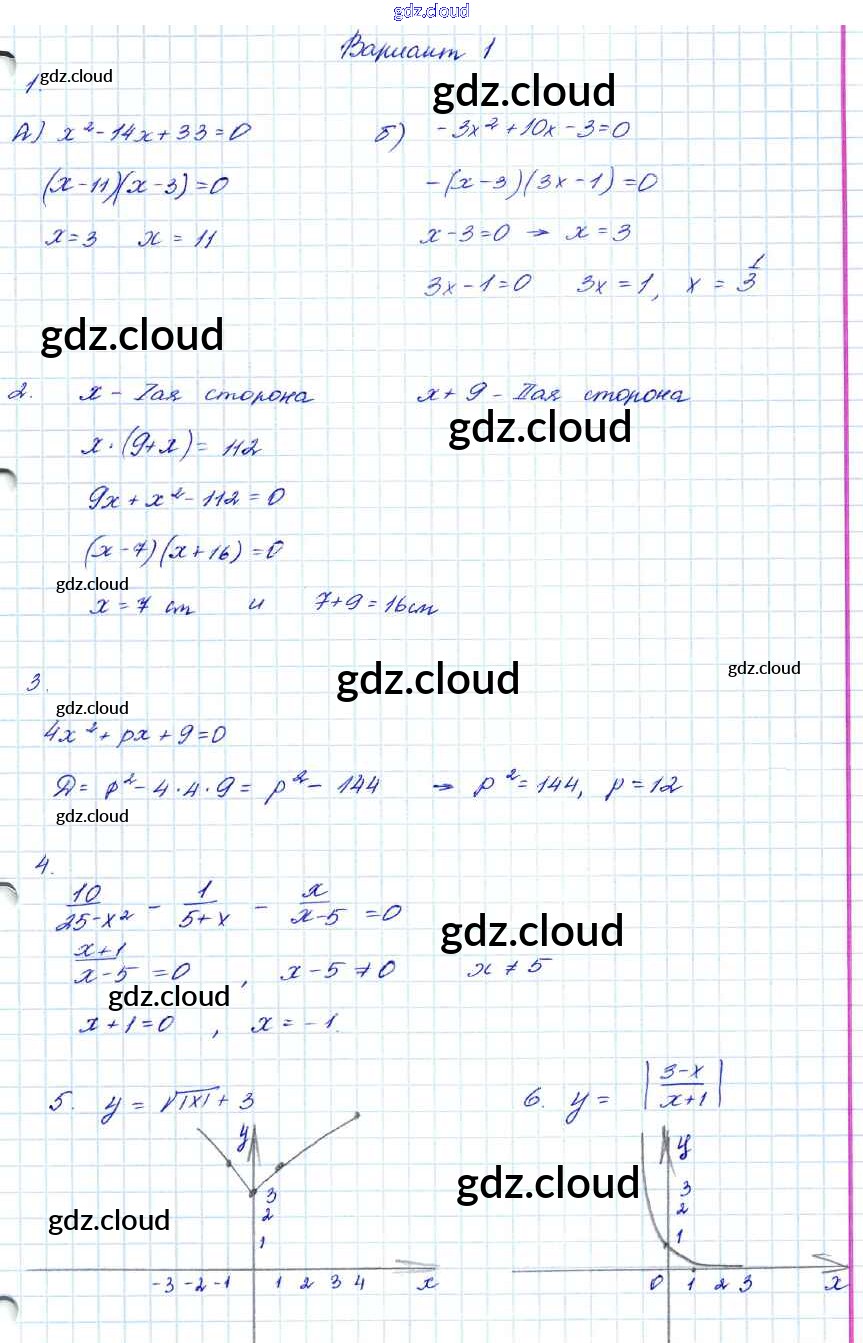 gdz.cloud
Вариант 1
1. gdz.cloud gdz.cloud
А) x² - 14x + 33 = 0 б) -3x² + 10x - 3 = 0
(x - 11)(x - 3) = 0 -(x - 3)(3x - 1) = 0
x = 3 x = 11 x - 3 = 0 → x = 3
3x - 1 = 0 3x = 1, x = 1/3
gdz.cloud
2. x - Iая сторона x + 9 - IIая сторона
gdz.cloud
x · (9 + x) = 112
9x + x² - 112 = 0
(x - 7)(x + 16) = 0
gdz.cloud
x = 7 cm и 7 + 9 = 16 см
3. gdz.cloud gdz.cloud
gdz.cloud
4x² + px + 9 = 0
Д = p² - 4 · 4 · 9 = p² - 144 → p² = 144, p = 12
gdz.cloud
4.
10/(25 - x²) - 1/(5 + x) - x/(x - 5) = 0
gdz.cloud
(x + 1)/(x - 5) = 0 , x - 5 ≠ 0 x ≠ 5
gdz.cloud
x + 1 = 0 , x = -1.
5. y = √|x| + 3 6. y = |(3 - x)/(x + 1)|
y y
3 3
2 2
1 1
gdz.cloud gdz.cloud
-3 -2 -1 1 2 3 4 x 0 1 2 3 x